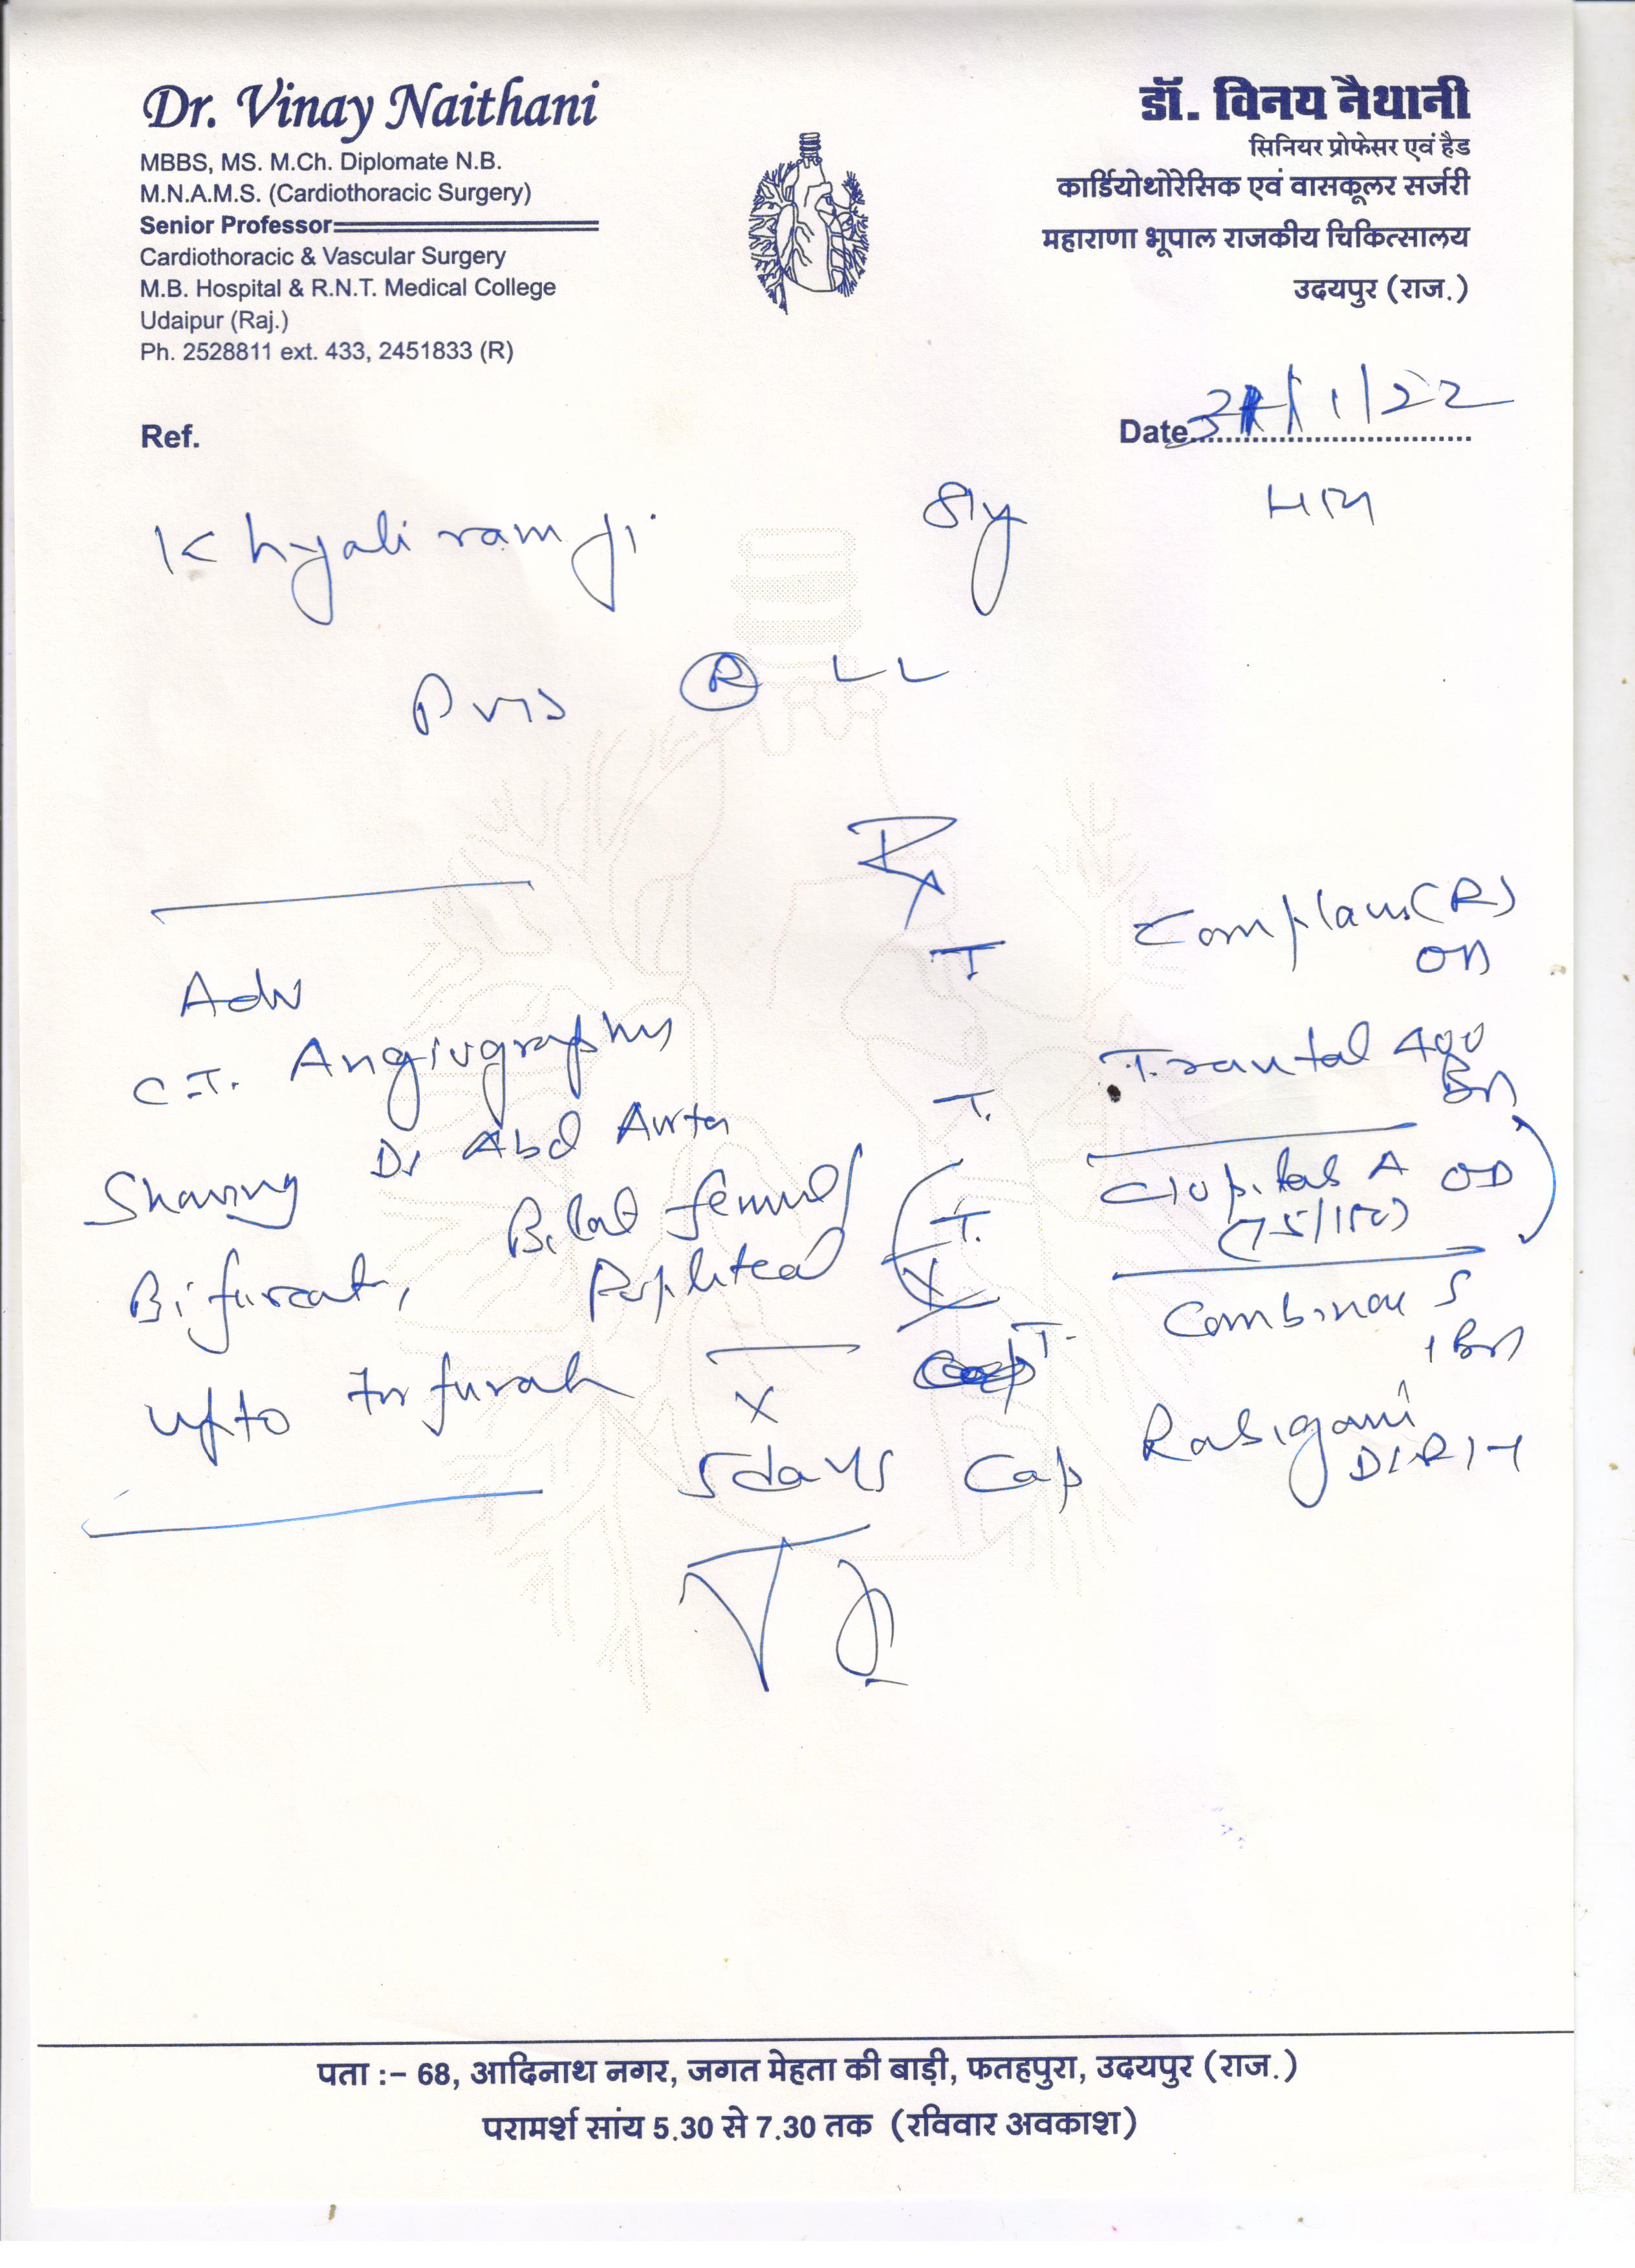 Dr. Vinay Naithani
MBBS, MS. M.Ch. Diplomate N.B.
M.N.A.M.S. (Cardiothoracic Surgery)
Senior Professor
Cardiothoracic & Vascular Surgery
M.B. Hospital & R.N.T. Medical College
Udaipur (Raj.)
Ph. 2528811 ext. 433, 2451833 (R)
डॉ. विनय नैथानी
सिनियर प्रोफेसर एवं हैड
कार्डियोथोरेसिक एवं वासकूलर सर्जरी
महाराणा भूपाल राजकीय चिकित्सालय
उदयपुर (राज.)
Ref.
Date 31/1/22
Khyali ram ji 81y
R LL
Rx
Adv
C.T. Angiography
Showing Abd Aorta
Bifurcat, Bilat femul
Popliteal
upto
x
5 days
T
OD
T. Trental 400
BD
T. Clopitab A OD
(75/150)
T.
1 BD
Cap
पता :– 68, आदिनाथ नगर, जगत मेहता की बाड़ी, फतहपुरा, उदयपुर (राज.)
परामर्श सांय 5.30 से 7.30 तक (रविवार अवकाश)